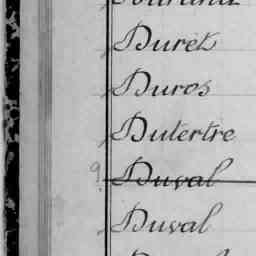 Duret
Duros
Dutertre
9 Duval
Duval